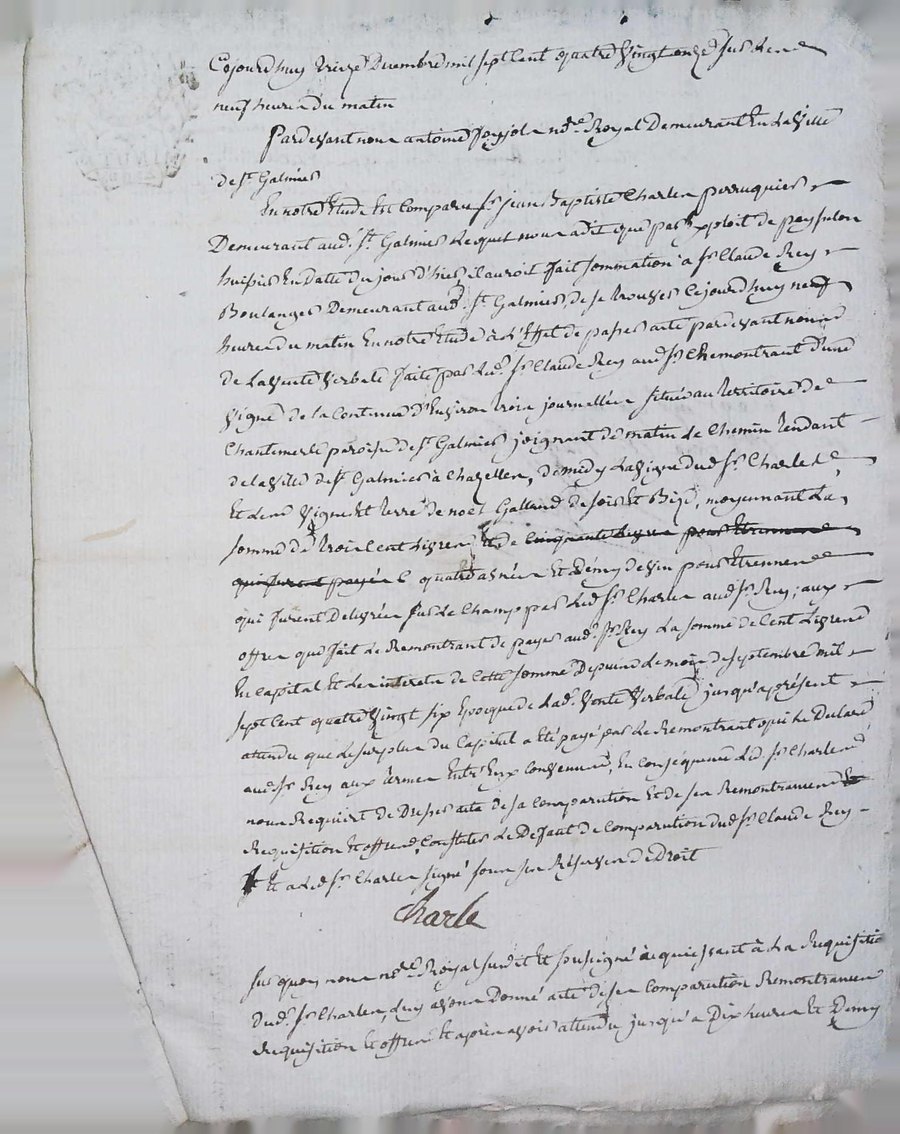 Cejourd'huy treize Decembre mil sept cent quatre vingt onze sur les
neuf heures du matin
Pardevant nous antoine nore. Royal Demeurant En La Ville
de st. Galmier
En notre Etude Est Comparu sr. jean Baptiste Charles perruquier
Demeurant aud. st. Galmier Lequel nous a dit que par Exploit de peysselon
huissier En datte du jour d'hier il auroit fait sommation a sr. Claude Rey
Boulanger Demeurant aud. st. Galmier, de se trouver Cejourd'huy neuf
heures du matin En notre Etude à L'Effet de passer acte pardevant nous
de La Vente Verbale faite par Led. sr. Claude Rey aud. sr. Remontrant d'une
Vigne de la Contenue d'Environ trois journallées située au territoire de
Chantemerle paroisse de st. Galmier, joignant de matin Le Chemin tendant
de la Ville de st. Galmier à Chazelles, de midy La Vigne dud. sr. Charles
Et Les Vigne Et terre de noel Galland de soir Et Bize, moyennant La
somme de trois Cent Livres Et de cinquante Livres pour Etrennes
qui furent payés quatre anées Et Demy de Vin pour Etrennes
qui furent Delivrées sur Le Champ par Led. sr. Charles aud. sr. Rey; aux
offres que fait Le Remontrant de payer aud. sr. Rey La somme de Cent Livres
En Capital Et Les interets de Cette somme Depuis Le mois de septembre mil
sept Cent quatre Vingt six Epoque de Lad. Vente Verbale jusqu'aprésent
attendu que Le surplus du Capital a Eté payé par Le Remontrant
aud. sr. Rey aux termes Entr'Eux Convenus, En Conséquence Led. sr. Charles
nous Requiert de Dresser acte de sa Comparution Et de ses Remontrances
Requisition Et offres, Constater Le Deffaut de Comparution dud. sr. Claude Rey
Et a Led. sr. Charles signé sous ses Réserves de Droit
Charle
sur quoy nous nore. Royal susdit Et soussigné acquiessant à La Requisition
dud. sr. Charles, Luy avons Donné acte de ses Comparution Remontrances
Requisition Et offres Et après avoir attendu jusqu'a Dix heures Et Demy